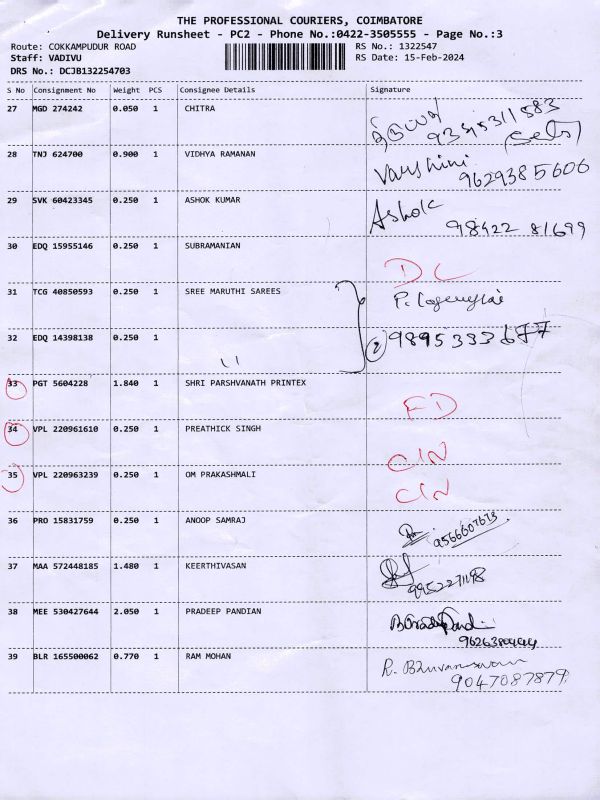 THE PROFESSIONAL COURIERS, COIMBATORE
Delivery Runsheet - PC2 - Phone No.:0422-3505555 - Page No.:3
Route: COKKAMPUDUR ROAD RS No.: 1322547
Staff: VADIVU RS Date: 15-Feb-2024
DRS No.: DCJB132254703
S No Consignment No Weight PCS Consignee Details Signature
27 MGD 274242 0.050 1 CHITRA
28 TNJ 624700 0.900 1 VIDHYA RAMANAN Varshini 9629385606
29 SVK 60423345 0.250 1 ASHOK KUMAR Ashok 98422 81699
30 EDQ 15955146 0.250 1 SUBRAMANIAN DL
31 TCG 40850593 0.250 1 SREE MARUTHI SAREES
32 EDQ 14398138 0.250 1 11 2 9895333677
33 PGT 5604228 1.840 1 SHRI PARSHVANATH PRINTEX FD
34 VPL 220961610 0.250 1 PREATHICK SINGH CIN
35 VPL 220963239 0.250 1 OM PRAKASHMALI CIN
36 PRO 15831759 0.250 1 ANOOP SAMRAJ
37 MAA 572448185 1.480 1 KEERTHIVASAN
38 MEE 530427644 2.050 1 PRADEEP PANDIAN
39 BLR 165500062 0.770 1 RAM MOHAN R. 9047087879